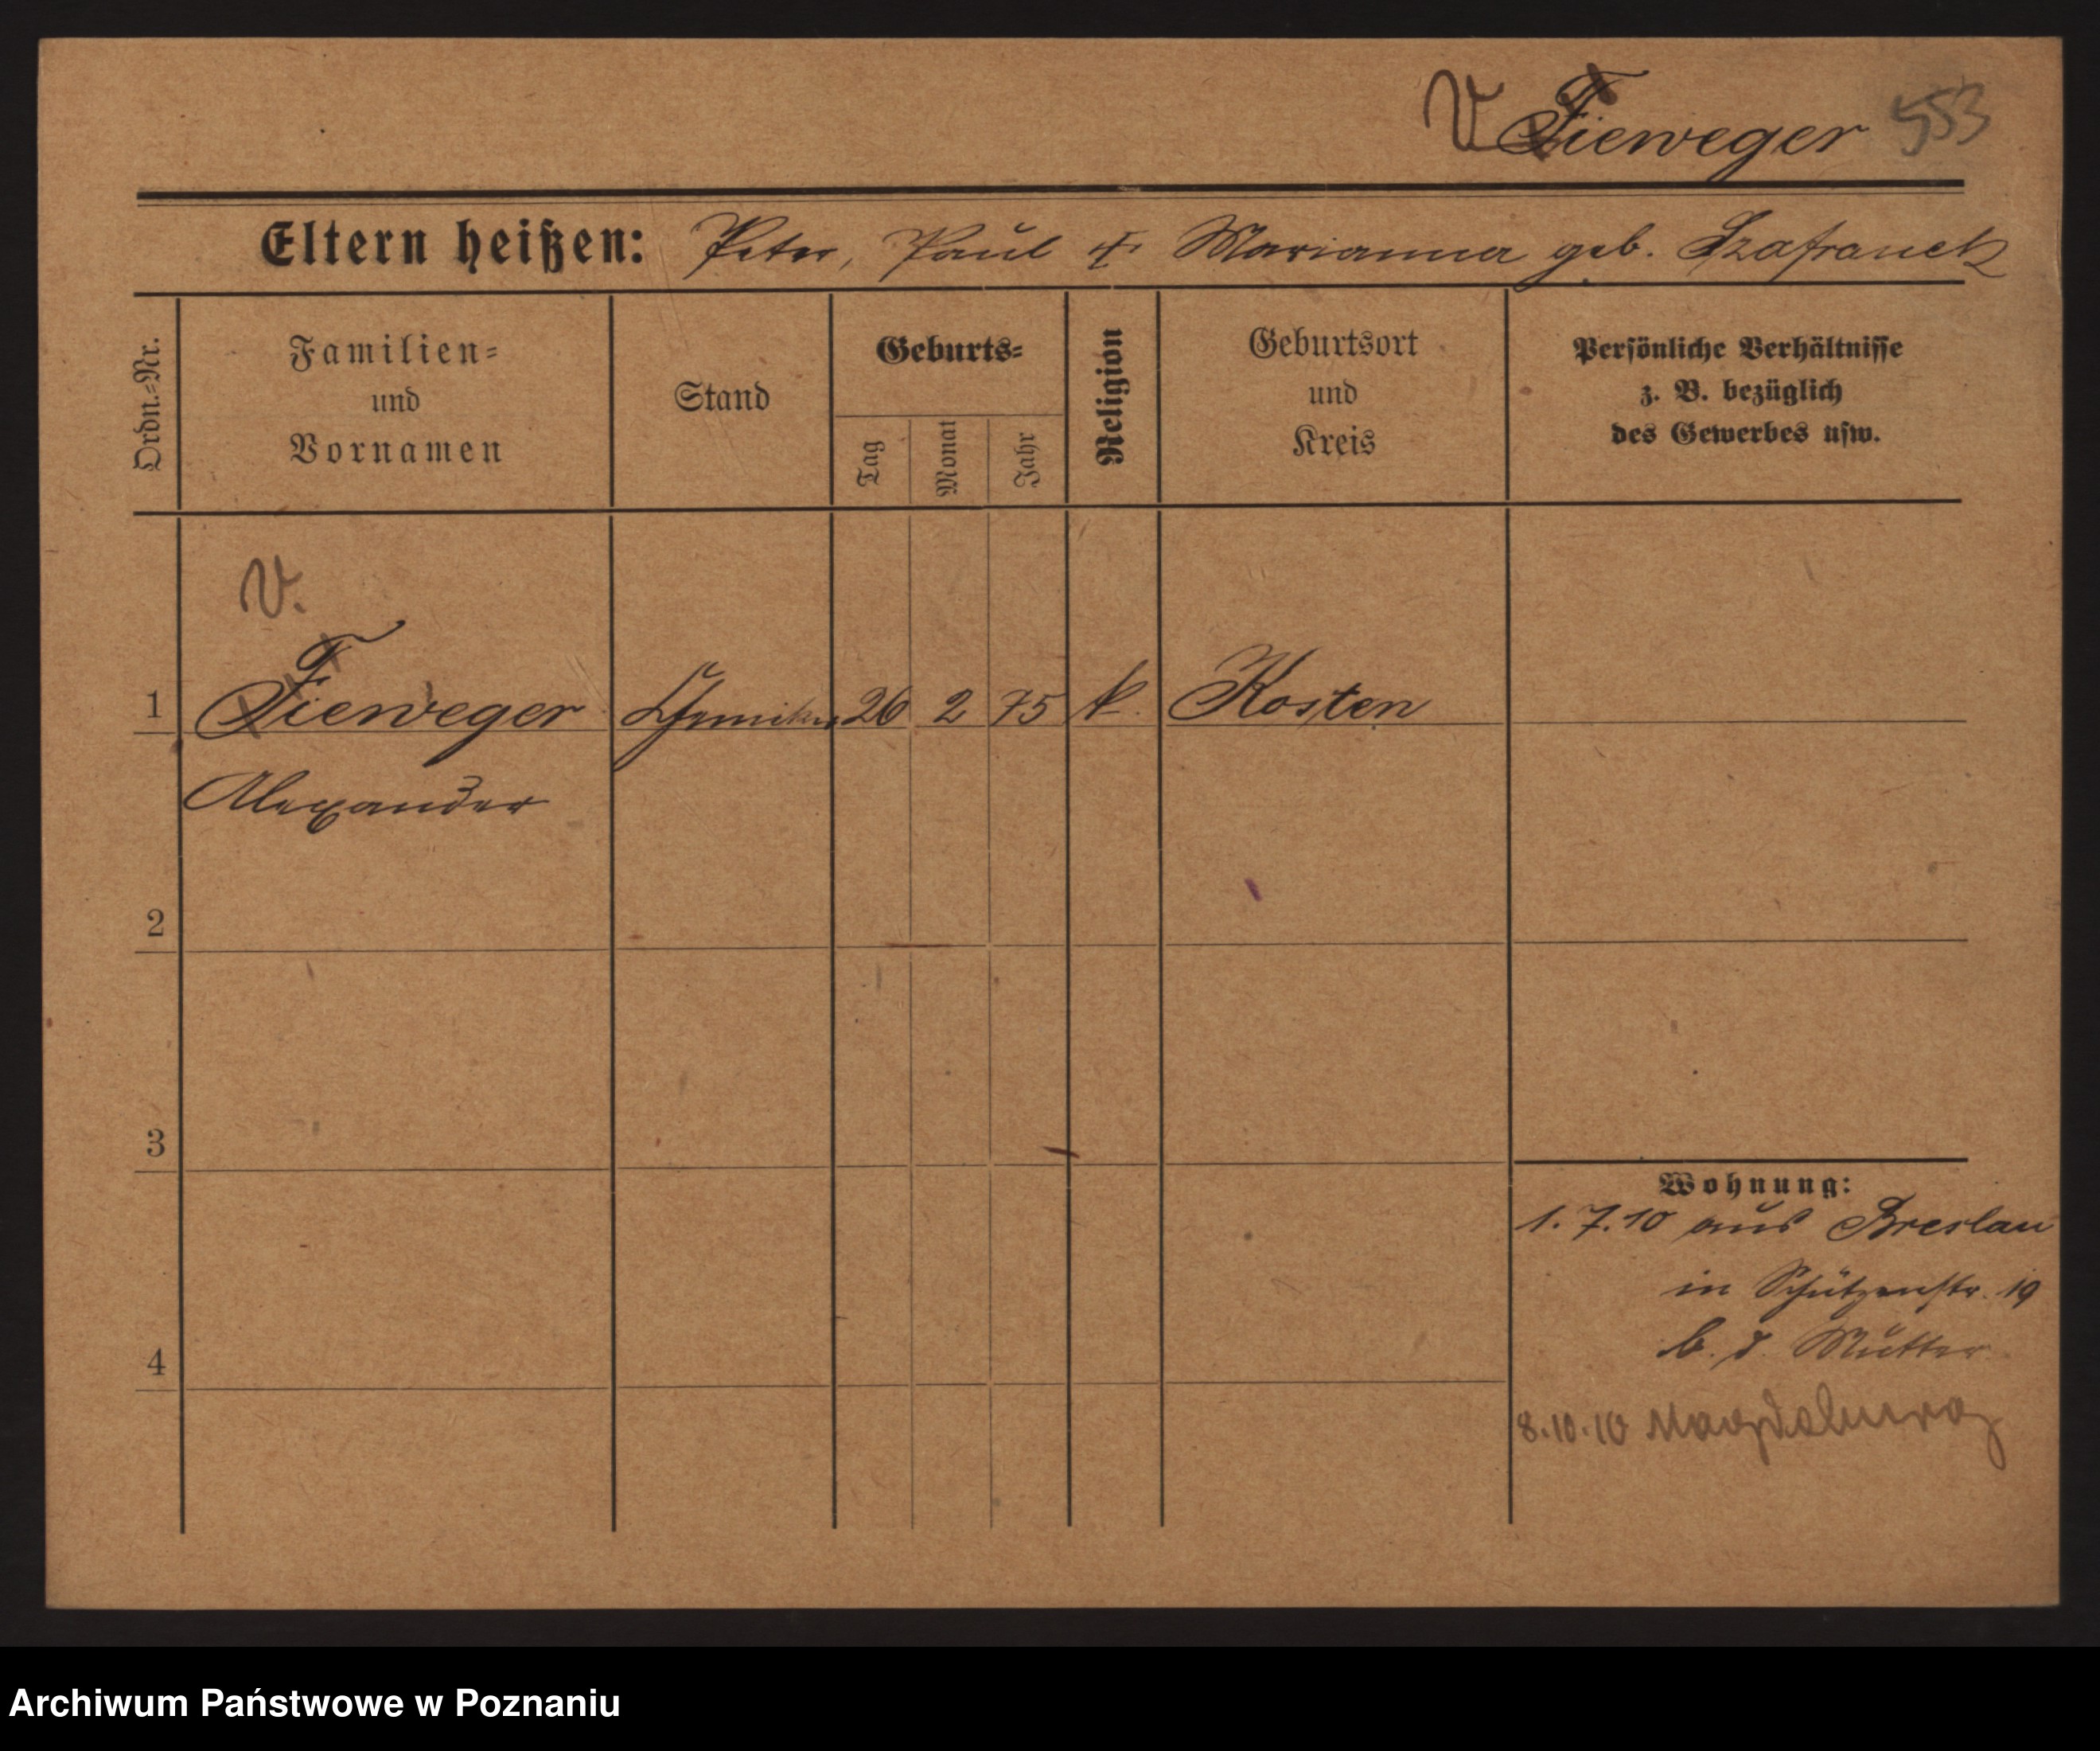 V Fieweger 553
Eltern heißen: Peter, Paul & Marianna geb. Szafranek
Ordn.=Nr.
Familien=
und
Vornamen
Stand
Geburts=
Tag
Monat
Jahr
Religion
Geburtsort
und
Kreis
Persönliche Verhältnisse
z. B. bezüglich
des Gewerbes usw.
V.
1 Fieweger Chemiker 26 2 75 k. Kosten
Alexander
2
3
4
Wohnung:
1.7.10 aus Breslau
in Schützenstr. 19
b. d. Mutter
8.10.10 Magdeburg
Archiwum Państwowe w Poznaniu